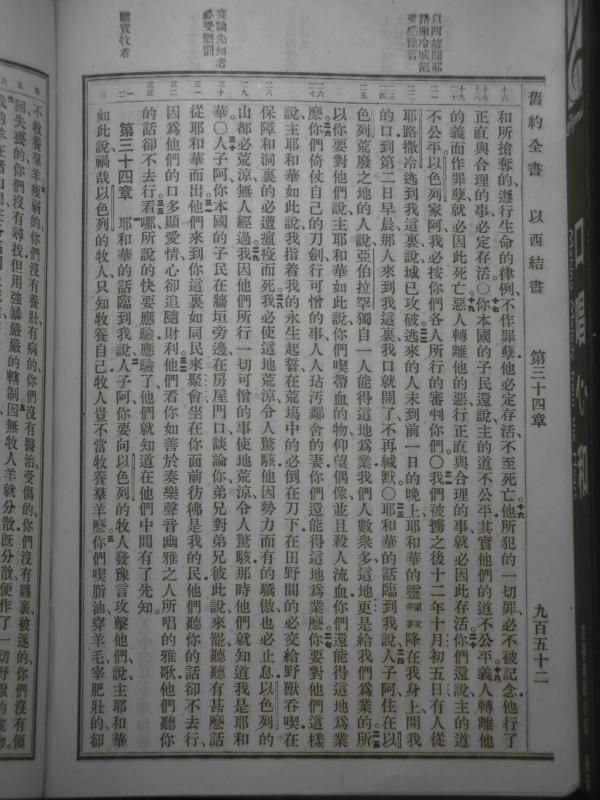 舊約全書 以西結書 第三十四章 九百五十二
和所搶奪的遵行生命的律例不作罪孽他必定存活不至死亡他所犯的一切罪必不被記念他行了
正直與合理的事必定存活〇你本國的子民還說主的道不公平其實他們的道不公平義人轉離他
的義而作罪孽就必因此死亡惡人轉離他的惡行正直與合理的事就必因此存活你們還說主的道
不公平以色列家阿我必按你們各人所行的審判你們〇我們被擄之後十二年十月初五日有人從
耶路撒冷逃到我這裏說城已攻破逃來的人未到前一日的晚上耶和華的靈降在我身上開我
的口到第二日早晨那人來到我這裏我口就開了不再緘默〇耶和華的話臨到我說人子阿住在以
色列荒廢之地的人說亞伯拉罕獨自一人能得這地爲業我們人數衆多這地更是給我們爲業的所
以你要對他們說主耶和華如此說你們喫帶血的物仰望偶像並且殺人流血你們還能得這地爲業
麽你們倚仗自己的刀劍行可憎的事人人玷汚鄰舍的妻你們還能得這地爲業麽你要對他們這樣
說主耶和華如此說我指着我的永生起誓在荒塲中的必倒在刀下在田野間的必交給野獸吞喫在
保障和洞裏的必遭瘟疫而死我必使這地荒涼令人驚駭他因勢力而有的驕傲也必止息以色列的
山都必荒涼無人經過我因他們所行一切可憎的事使地荒涼令人驚駭那時他們就知道我是耶和
華〇人子阿你本國的子民在牆垣旁邊在房屋門口談論你弟兄對弟兄彼此說來罷聽聽有甚麽話
從耶和華而出他們來到你這裏如同民來聚會坐在你面前彷彿是我的民他們聽你的話卻不去行
因爲他們的口多顯愛情心卻追隨財利他們看你如善於奏樂聲音幽雅之人所唱的雅歌他們聽你
的話卻不去行看哪所說的快要應驗應驗了他們就知道在他們中間有了先知
第三十四章 耶和華的話臨到我說人子阿你要向以色列的牧人發豫言攻擊他們說主耶和華
如此說禍哉以色列的牧人只知牧養自己牧人豈不當牧養羣羊麽你們喫脂油穿羊毛宰肥壯的卻
不牧養羣羊瘦弱的你們沒有養壯有病的你們沒有醫治受傷的你們沒有纏裹被逐的你們沒有領
回失喪的你們沒有尋找但用強暴嚴嚴的轄制因無牧人羊就分散旣分散便作了一切野獸的食物
口唱心和